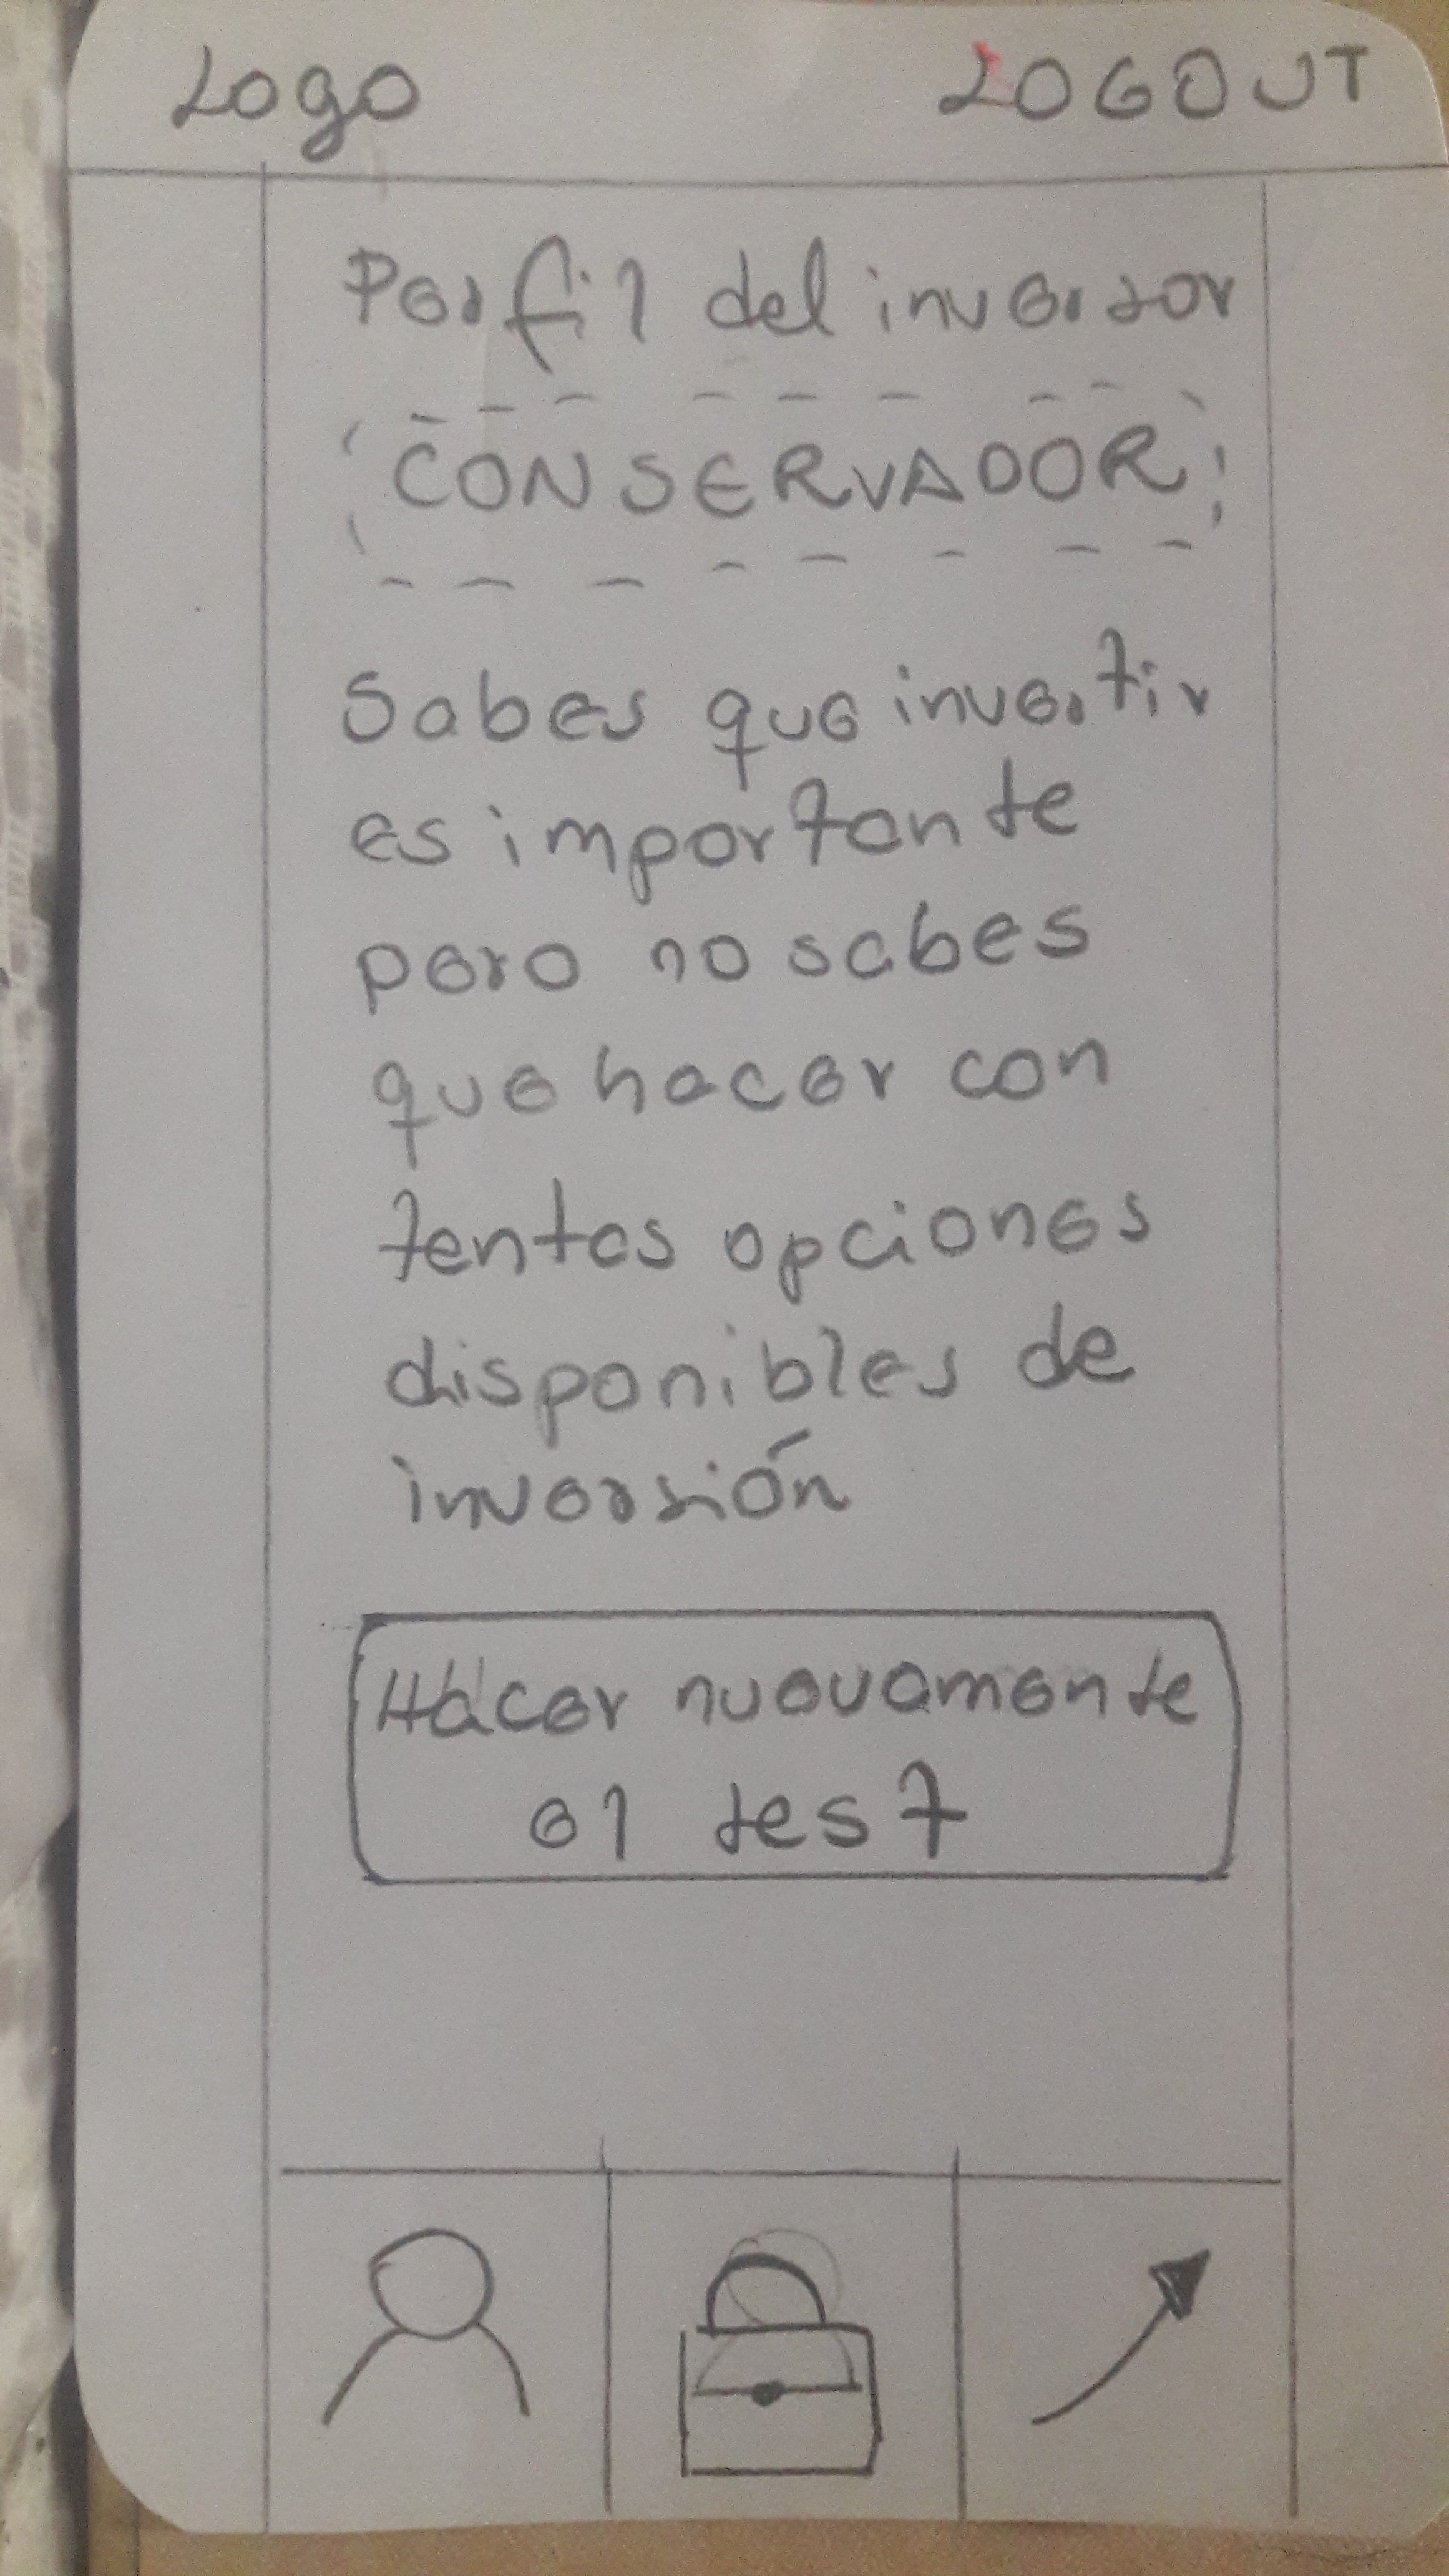 Logo LOGOUT
Perfil del inversor
CONSERVADOR
Sabes que invertir
es importante
pero no sabes
que hacer con
tantas opciones
disponibles de
inversión
Hacer nuevamente
el test